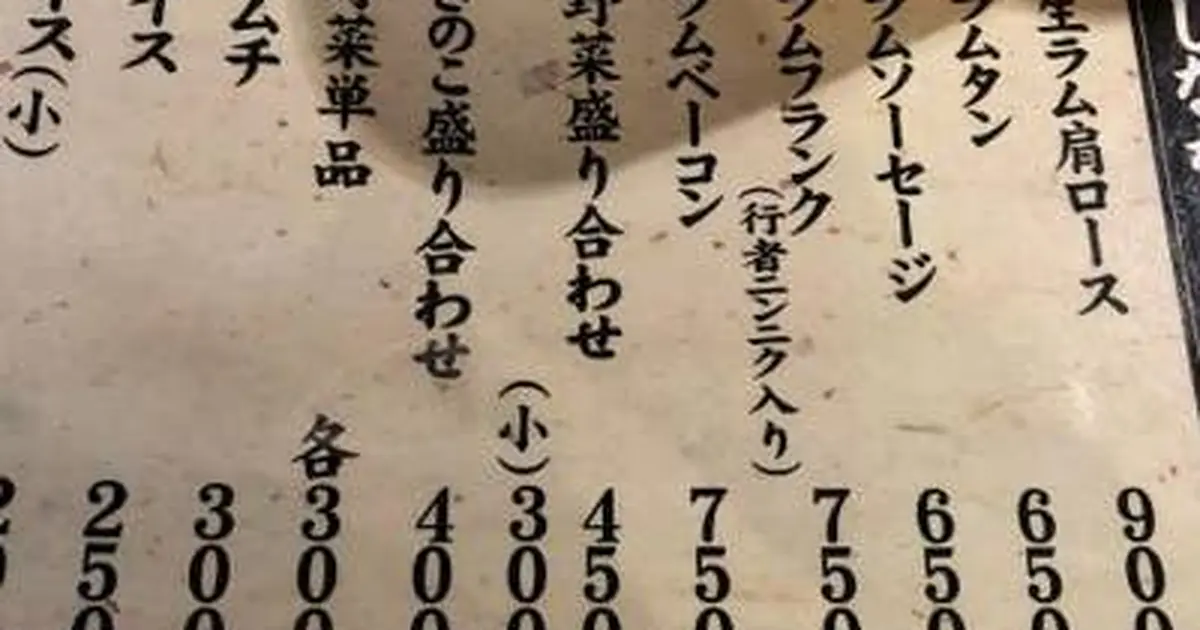 生ラム肩ロース 90
ラムタン 65
ラムソーセージ 65
ラムフランク 75
（行者ニンニク入り）
ラムベーコン 75
野菜盛り合わせ 45
（小） 30
きのこ盛り合わせ 40
野菜単品 各30
ムチ 30
イス 25
ース（小） 2